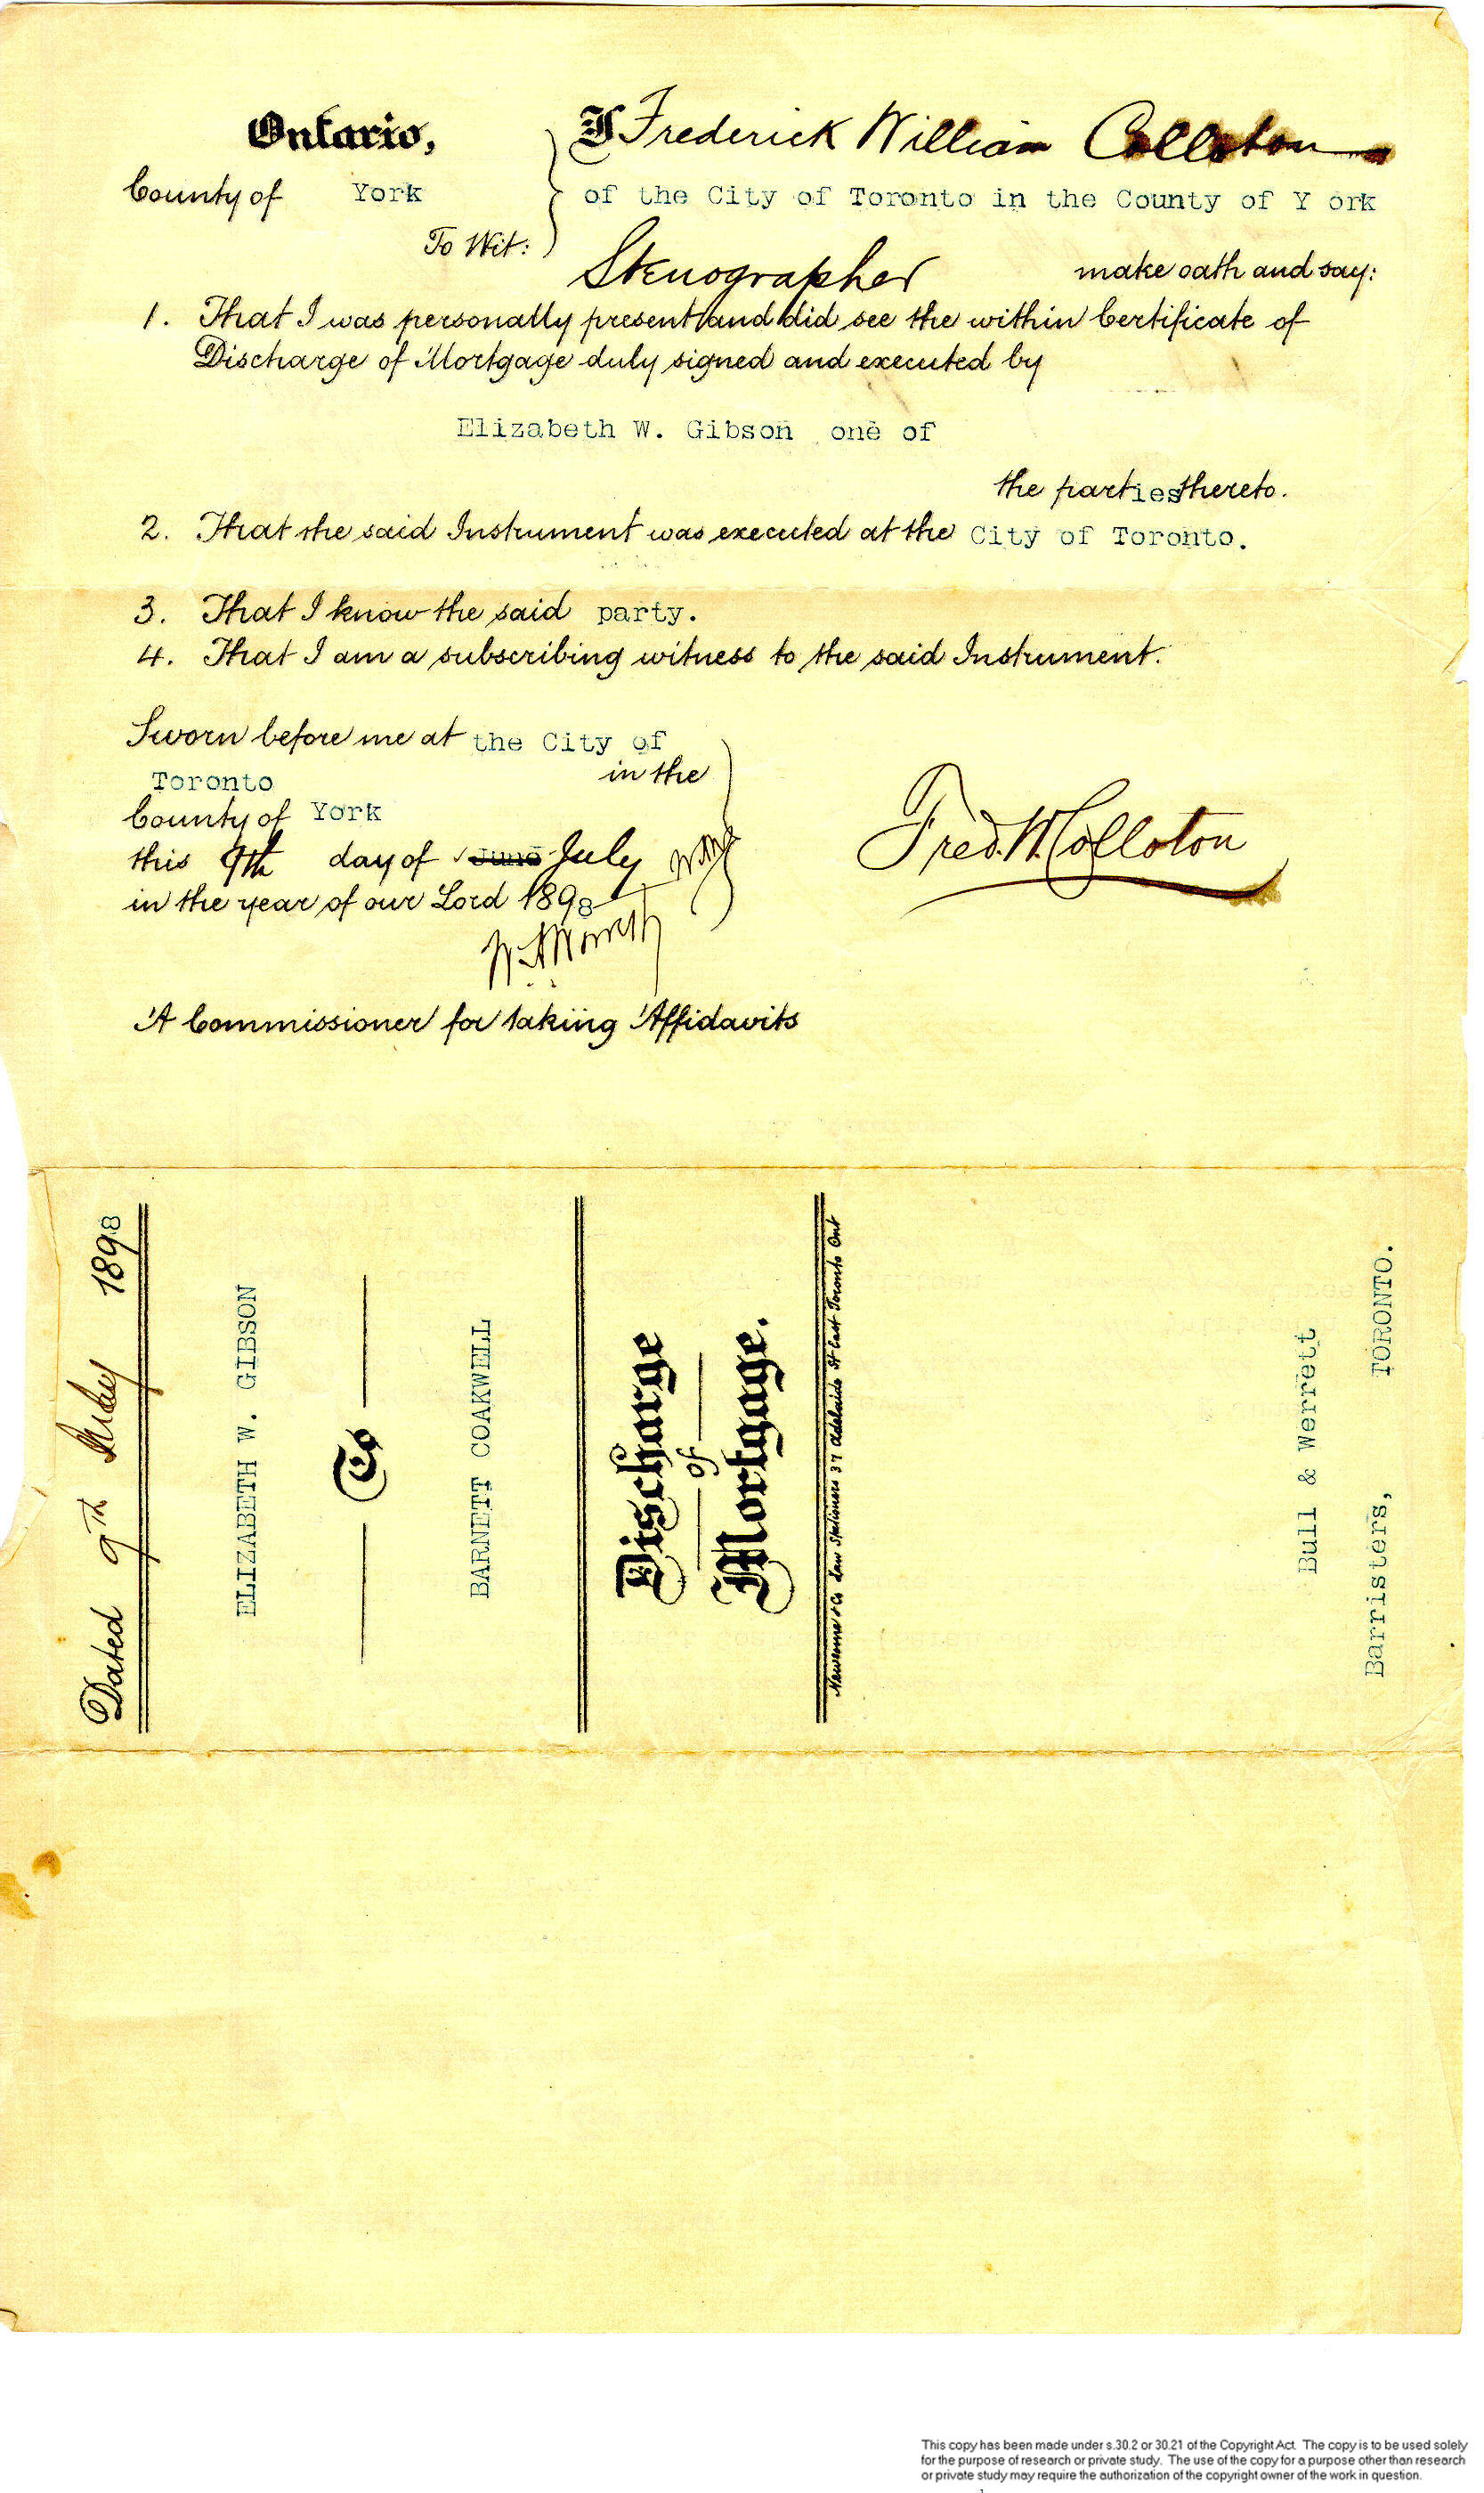 Ontario,
I Frederick William Colloton
County of York
of the City of Toronto in the County of Y ork
To Wit:
Stenographer make oath and say:
1. That I was personally present and did see the within Certificate of
Discharge of Mortgage duly signed and executed by
Elizabeth W. Gibson one of
the parties thereto.
2. That the said Instrument was executed at the City of Toronto.
3. That I know the said party.
4. That I am a subscribing witness to the said Instrument.
Sworn before me at the City of
Toronto in the
County of York
this 9th day of June July
in the year of our Lord 1898
Fred. W. Colloton
A Commissioner for taking Affidavits
Dated 9TH July 1898
ELIZABETH W. GIBSON
To
BARNETT COAKWELL
Discharge
of
Mortgage.
Newsome & Co Law Stationers 37 Adelaide St East Toronto Ont
Bull & Werrett
Barristers, TORONTO.
This copy has been made under s.30.2 or 30.21 of the Copyright Act. The copy is to be used solely
for the purpose of research or private study. The use of the copy for a purpose other than research
or private study may require the authorization of the copyright owner of the work in question.